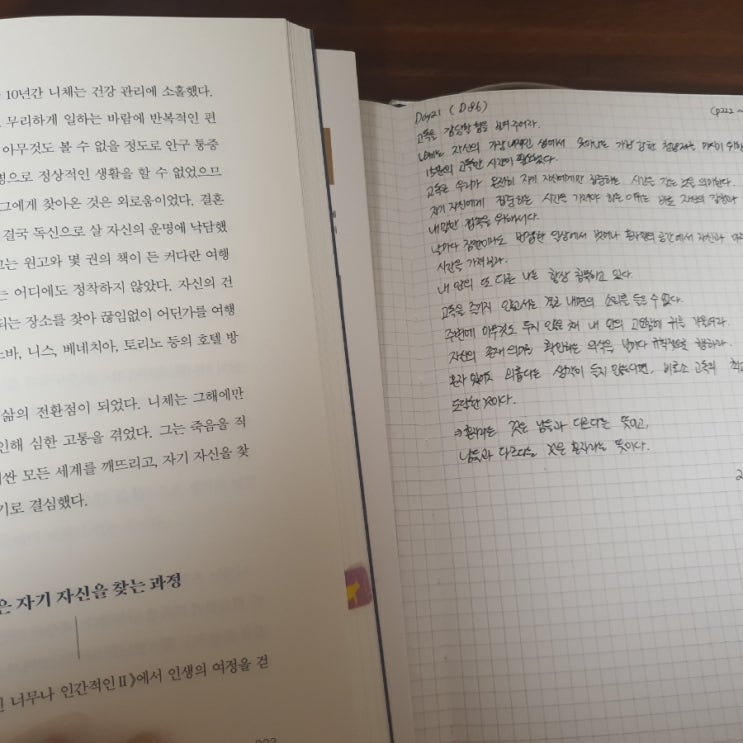 10년간 니체는 건강 관리에 소홀했다.
무리하게 일하는 바람에 반복적인 편
아무것도 볼 수 없을 정도로 안구 통증
병으로 정상적인 생활을 할 수 없었으므
그에게 찾아온 것은 외로움이었다. 결혼
결국 독신으로 살 자신의 운명에 낙담했
그는 원고와 몇 권의 책이 든 커다란 여행
는 어디에도 정착하지 않았다. 자신의 건
되는 장소를 찾아 끊임없이 어딘가를 여행
노바, 니스, 베네치아, 토리노 등의 호텔 방
삶의 전환점이 되었다. 니체는 그해에만
인해 심한 고통을 겪었다. 그는 죽음을 직
싼 모든 세계를 깨뜨리고, 자기 자신을 찾
기로 결심했다.
은 자기 자신을 찾는 과정
너무나 인간적인 II》에서 인생의 여정을 걷
Day21 (D-86)
(p222 ~
고독을 감당할 힘을 보여주어라.
니체는 자신의 가장 내면적인 생에서 가장 강한
고독한 시간이 필요했다.
고독은 우리가 온전히 자기 자신에게만 집중하는 시간을 갖는 것을 의미한다.
자기 자신에게 집중하는 시간을 가져야 하는 이유는 바로 자신의
내밀한 접촉을 위해서다.
날마다 잠깐이라도 번잡한 일상에서 벗어나 혼자만의 공간에서 자신과
시간을 가져보라.
내 안의 또 다른 나는 항상 침묵하고 있다.
고독을 즐기지 않고서는 결코 내면의 소리를 들을 수 없다.
주변에 아무것도 두지 않은 채 내 안의 고요함에 귀를 기울여라.
자신의 존재 의미를 확인하는 의식을 날마다 규칙적으로 행하라.
혼자 있어도 외롭다는 생각이 들지 않는다면, 비로소 고독의
도달한 것이다.
⇒ 혼자라는 것은 남들과 다르다는 뜻이고,
남들과 다르다는 것은 혼자라는 뜻이다.